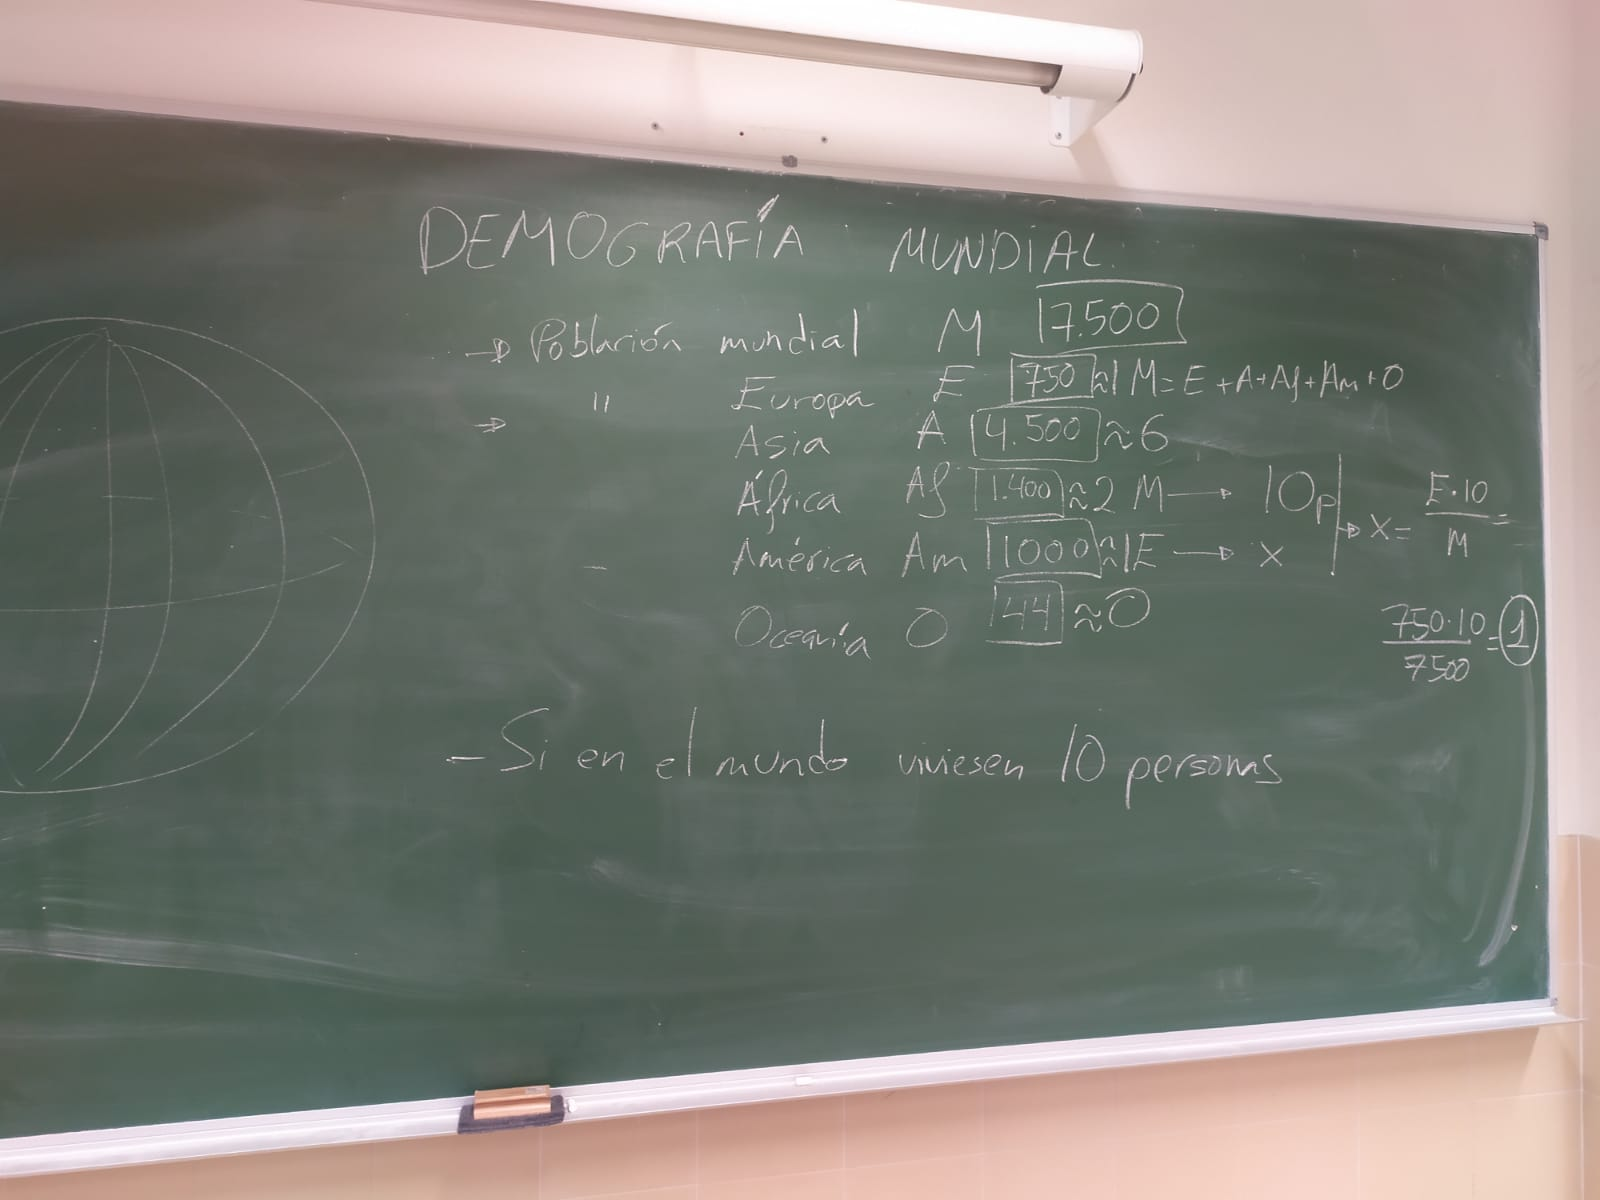 DEMOGRAFÍA MUNDIAL.
→ Población mundial M 7.500
→ " Europa E 750 ≈1 M=E+A+Af+Am+O
Asia A 4.500 ≈6
África Af 1.400 ≈2 M → 10p
América Am 1000 ≈1 E → x → x = E·10 / M =
Oceanía O 44 ≈0 750·10 / 7500 = 1
- Si en el mundo viviesen 10 personas